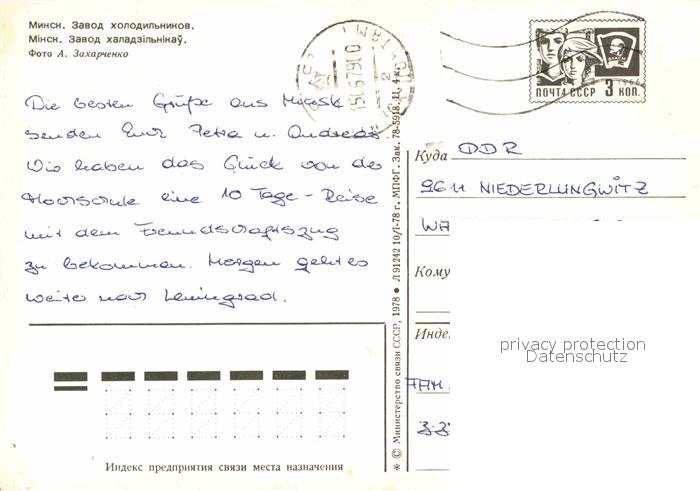 Минск. Завод холодильников.
Мінск. Завод халадзільнікаў.
Фото А. Захарченко
ПОЧТА СССР 3 КОП.
1966
Die besten Grüße aus Minsk
senden Euch Petra u. Andreas.
Wir haben das Glück von der
Hochschule eine 10 Tage-Reise
mit dem Freundschaftszug
zu bekommen. Morgen geht es
weiter nach Leningrad.
Куда DDR
9611 NIEDERLUNGWITZ
Кому
Инде
privacy protection
Datenschutz
FAM.
Индекс предприятия связи места назначения
* © Министерство связи СССР, 1978 • Л 91242 10/I-78 г. МПФГ. Зак. 78-5918. Ц. 4 к.